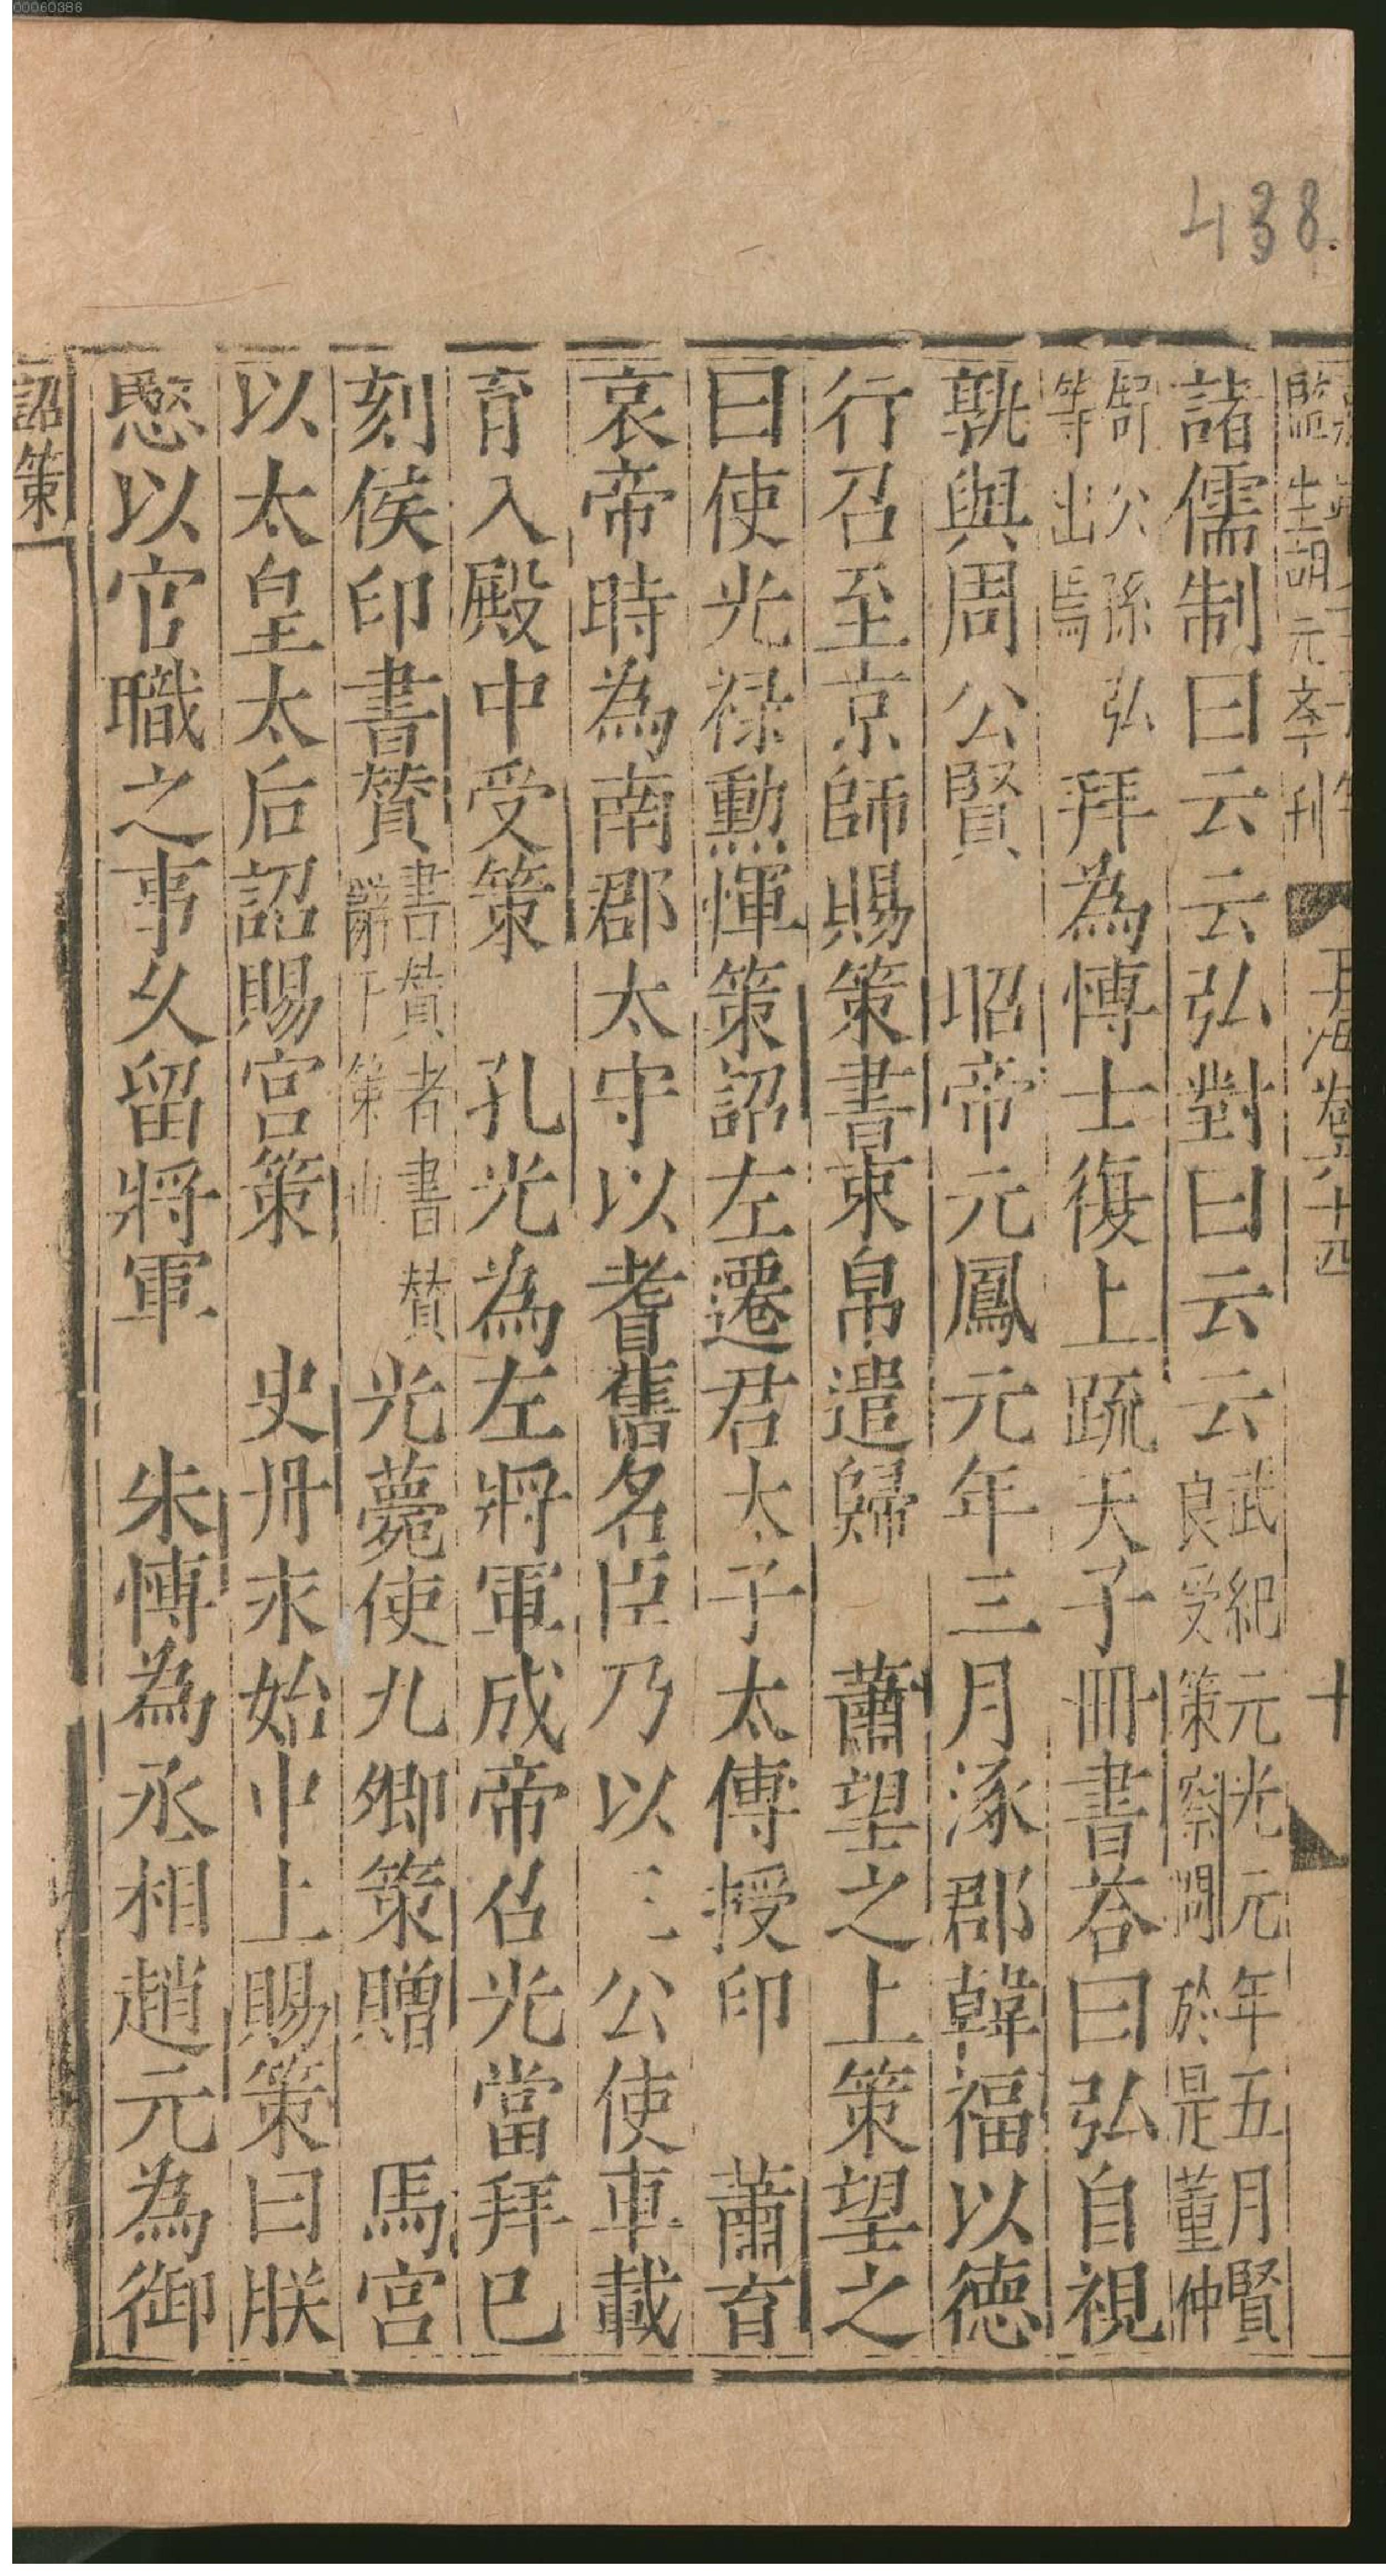 00060386
438.
監生胡元李刊
玉海卷六十四
十
諸儒制曰云云弘對曰云云武紀元光元年五月賢良受策察問於是董仲
舒公孫弘等出焉拜為博士復上疏天子冊書荅曰弘自視
孰與周公賢　昭帝元鳳元年三月涿郡韓福以德
行召至京師賜策書束帛遣歸　蕭望之上策望之
曰使光祿勳惲策詔左遷君太子太傅授印　蕭育
哀帝時為南郡太守以耆舊名臣乃以三公使車載
育入殿中受策　孔光為左將軍成帝召光當拜已
刻侯印書贊書贊者書贊辭于策也光薨使九卿策贈　馬宮
以太皇太后詔賜宮策　史丹永始中上賜策曰朕
愍以官職之事久留將軍　朱博為丞相趙元為御
詔策